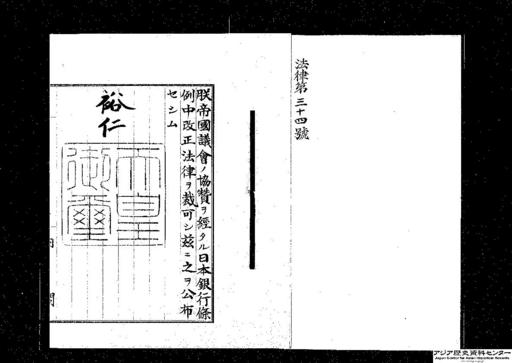 法律第三十四號
朕帝國議會ノ協贊ヲ經タル日本銀行條
例中改正法律ヲ裁可シ茲ニ之ヲ公布
セシム
裕仁
天皇
御璽
内閣
アジア歴史資料センター
Japan Center for Asian Historical Records